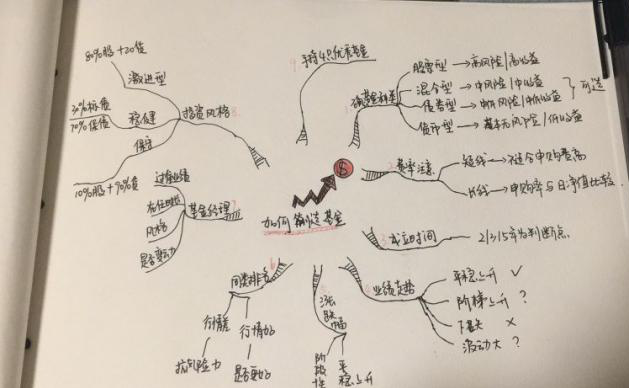 如何挑选基金
$
1 确基金种类
股票型→高风险/高收益
混合型→中风险/中收益
债券型→中低风险/中低收益
货币型→基本无风险/低收益
可选
2 费率注意
短线→不适合申购费高
长线→申购率与日净值比较
3 成立时间
2/3/5年为判断点
4 业绩走势
平稳上升 ✓
阶梯上升?
下跌 ×
波动大?
5 涨跌幅
阶段性
平稳上升
6 同类排名
行情差
抗风险力
行情好
是否更好
7 基金经理
过往业绩
在任时间
风格
是否变动
8 投资风格
激进型
80%股+20债
稳健
保守
10%股+90%债
9 手持4只优秀基金